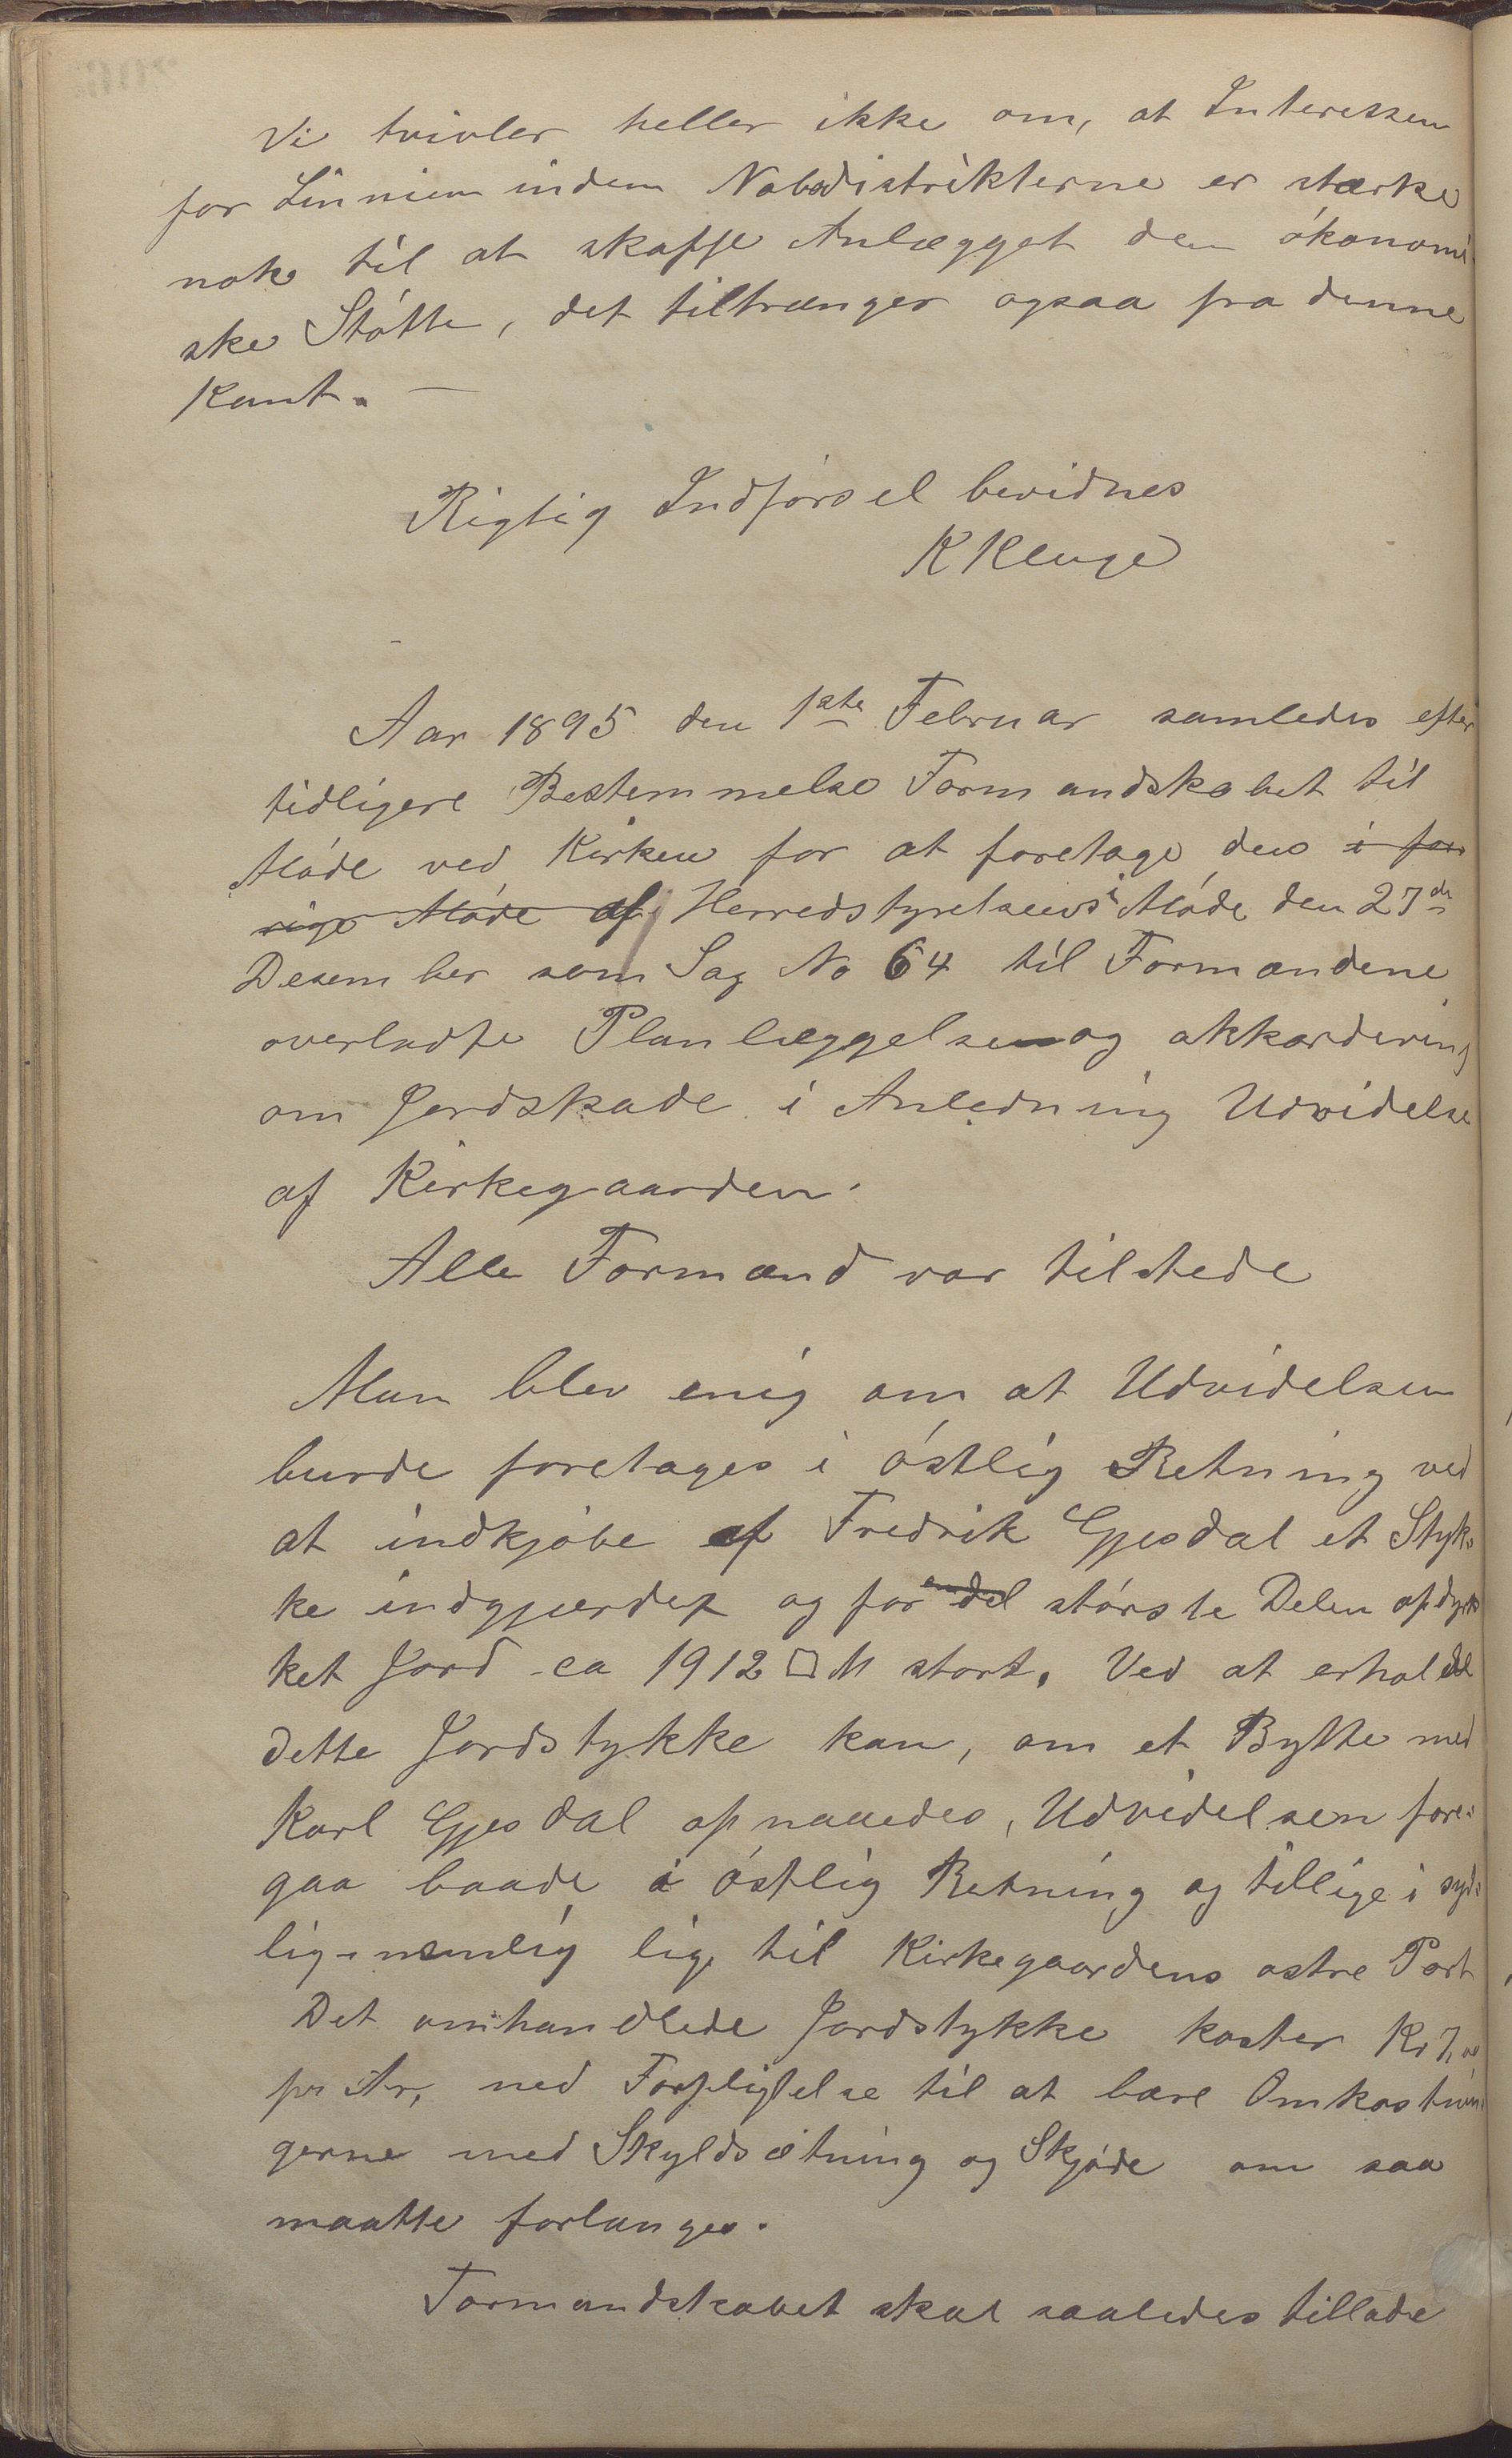 Vi tvivler heller ikke om, at Interessen
for Linnien inden Nabodistrikterne er stærke
nok til at skaffe Anlægget den ókonomi-
ske Stótte, det tiltrænger ogsaa fra denne
Kant. —
Rigtig Indførsel bevidnes
K Kluge
Aar 1895 den 1ste Februar samledes efter
tidligere Bestemmelse Formandskabet til
Móde ved Kirken for at foretage den i for
rige Móde af Herredstyrelsens i Móde den 27de
Desember som Sag No 64 til Formændene
overladte Planlæggelse og akkordering
om Jordskade i Anledning Udvidelse
af Kirkegaarden.
Alle Formænd var tilstede
Man blev enig om at Udvidelsen
burde foretages i óstlig Retning ved
at indkjóbe af Fredrik Gjesdal et Styk-
ke indgjærdet og for en del stórste Delen opdyr-
ket Jord ca 1912 □ M stort. Ved at erholde
dette Jordstykke kan, om et Bytte med
Karl Gjesdal opnaaedes, Udvidelsen fore-
gaa baade i óstlig Retning og tillige i syd-
lig nemlig lige til Kirkegaardens ostre Port
Det omhandlede Jordstykke koster Kr 7,00
pr Ar, med Forpligtelse til at bære Omkostnin-
gerne med Skyldsætning og Skjóde om saa
maatte forlanges.
Formandskabet skal saaledes tillade